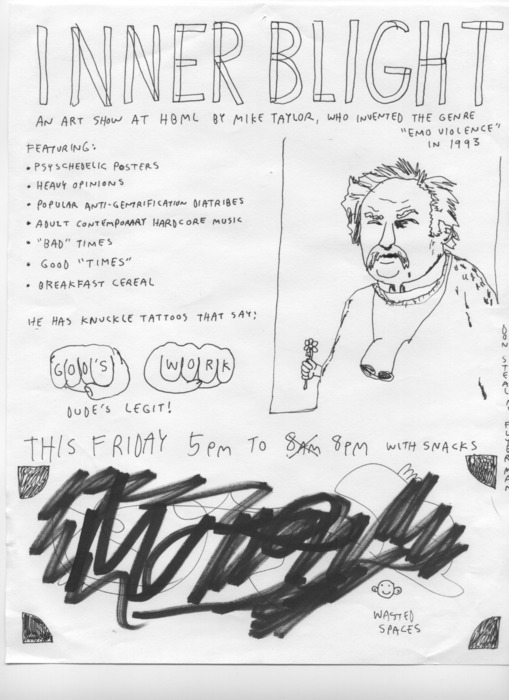 INNER BLIGHT
AN ART SHOW AT HBML BY MIKE TAYLOR, WHO INVENTED THE GENRE
"EMO VIOLENCE"
IN 1993
FEATURING:
• PSYSCHEDELIC POSTERS
• HEAVY OPINIONS
• POPULAR ANTI-GEMTRIFICATION DIATRIBES
• ADULT CONTEMPORARY HARDCORE MUSIC
• "BAD" TIMES
• GOOD "TIMES"
• BREAKFAST CEREAL
HE HAS KNUCKLE TATTOOS THAT SAY:
GOD'S WORK
DUDE'S LEGIT!
DON STEAL FLYER MAN
THIS FRIDAY 5PM TO 8AM 8PM WITH SNACKS
WASTED
SPACES